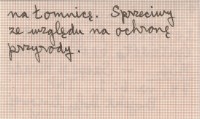 na Łomnicę. Sprzeciwy
ze względu na ochronę
przyrody.